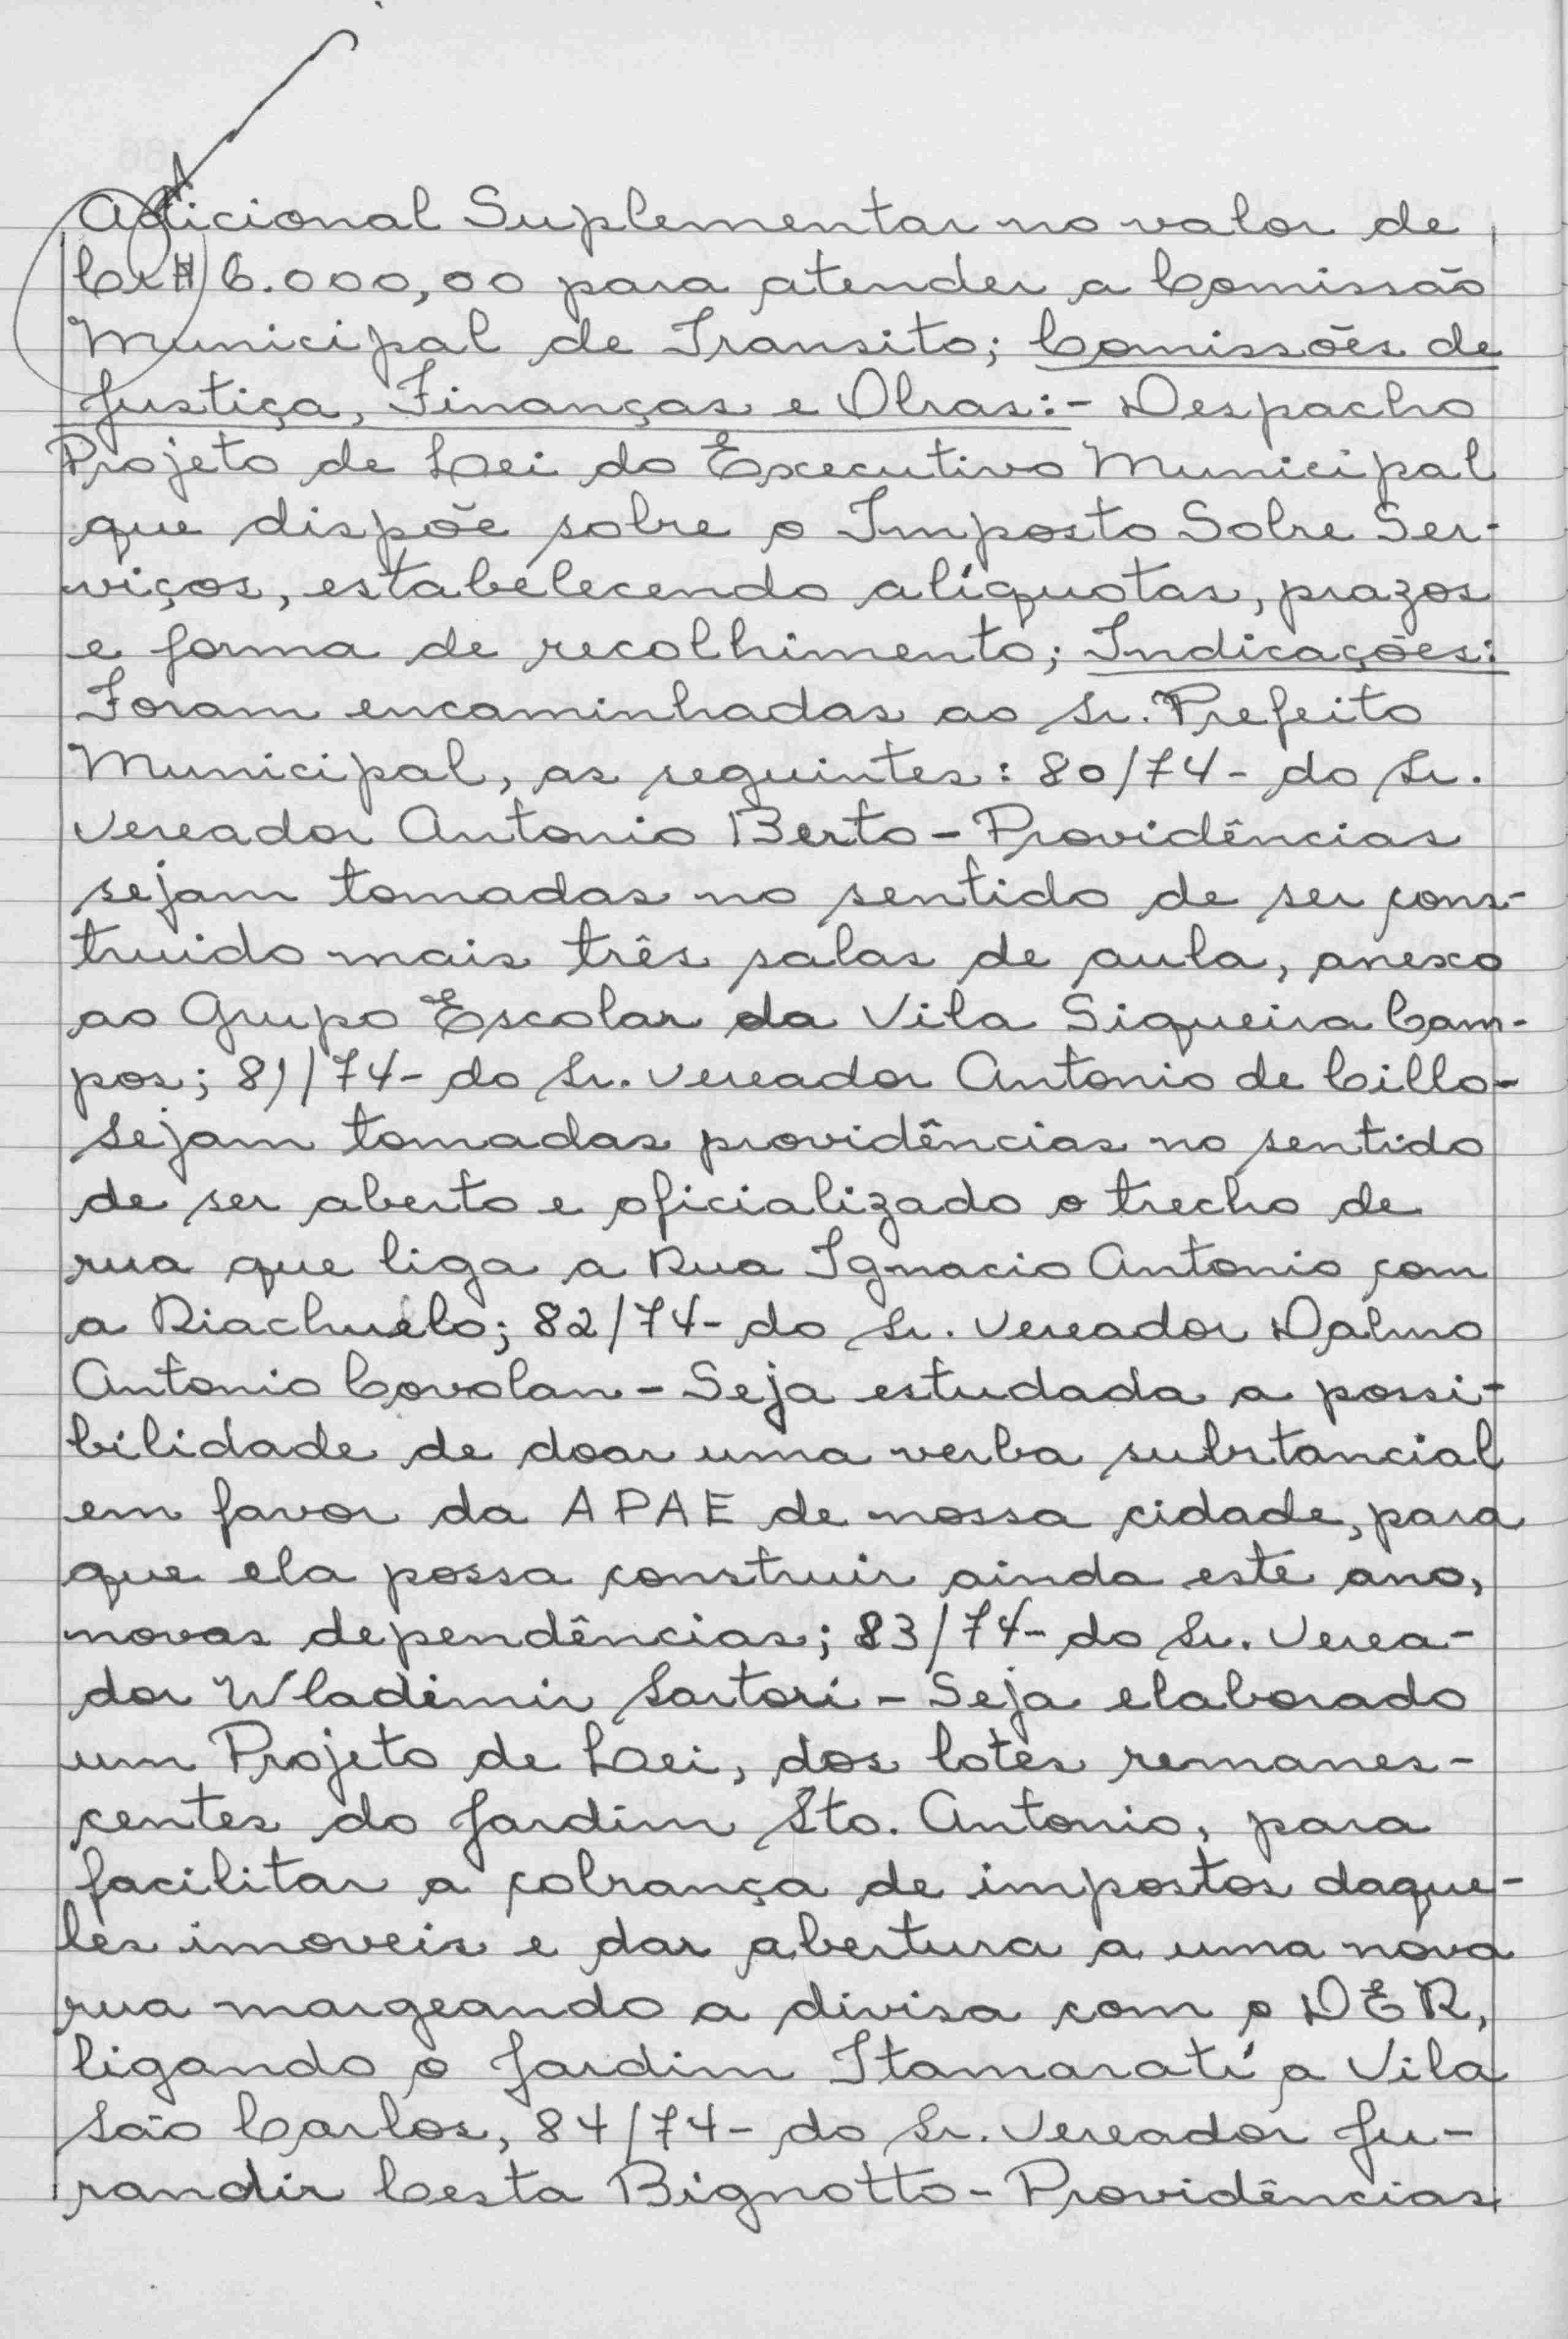 Adicional Suplementar no valor de
Cr$ 6.000,00 para atender a Comissão
Municipal de Transito; Comissões de
Justiça, Finanças e Obras:- Despacho
Projeto de Lei do Executivo Municipal
que dispõe sobre o Imposto Sobre Ser-
viços, estabelecendo alíquotas, prazos
e forma de recolhimento; Indicações:
Foram encaminhadas ao Sr. Prefeito
Municipal, as seguintes: 80/74- do Sr.
Vereador Antonio Berto - Providências
sejam tomadas no sentido de ser cons-
truido mais três salas de aula, anexo
ao Grupo Escolar da Vila Siqueira Cam-
pos; 81/74- do Sr. Vereador Antonio de Cillo-
Sejam tomadas providências no sentido
de ser aberto e oficializado o trecho de
rua que liga a Rua Ignacio Antonio com
a Riachuelo; 82/74- do Sr. Vereador Dalmo
Antonio Covolan - Seja estudada a possi-
bilidade de doar uma verba substancial
em favor da APAE de nossa cidade, para
que ela possa construir ainda este ano,
novas dependências; 83/74- do Sr. Verea-
dor Wladimir Sartori - Seja elaborado
um Projeto de Lei, dos lotes remanes-
centes do Jardim Sto. Antonio, para
facilitar a cobrança de impostos daque-
les imoveis e dar abertura a uma nova
rua margeando a divisa com o DER,
ligando o Jardim Itamaratí a Vila
São Carlos, 84/74- do Sr. Vereador Ju-
randir Cesta Bignotto - Providências